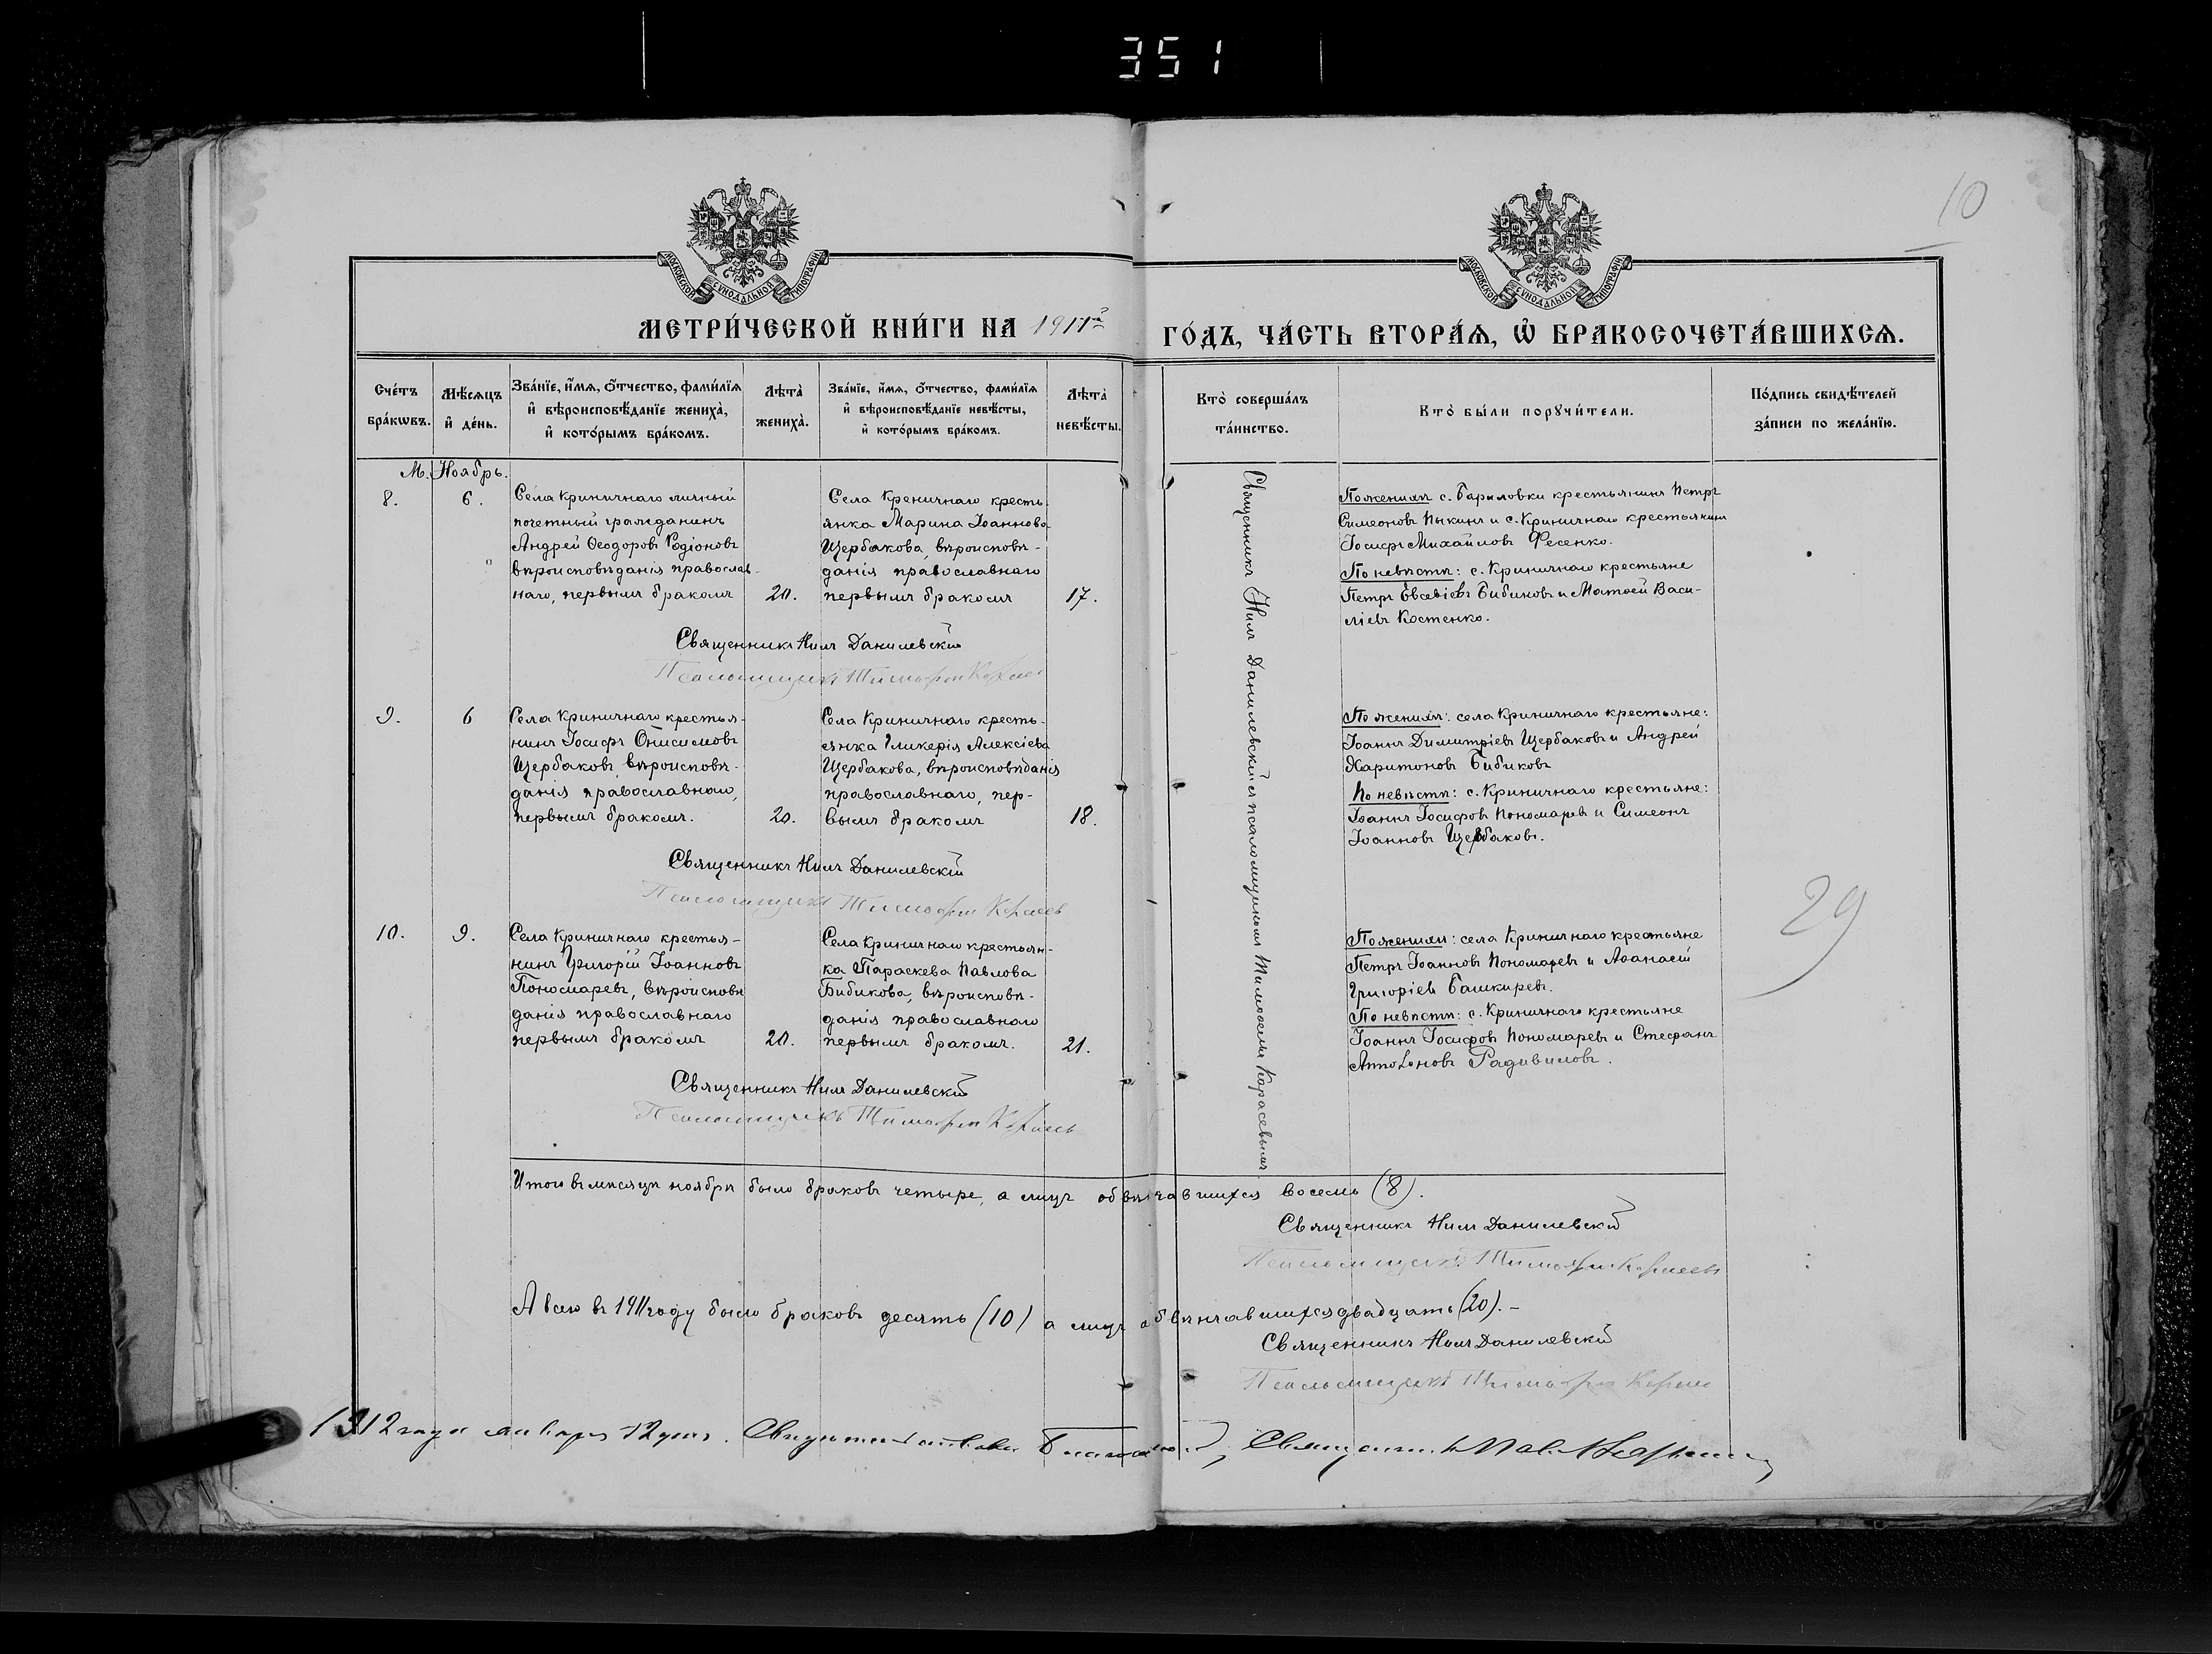 351
10
МОСКОВСКОЙ СѴНОДАЛЬНОЙ ТИПОГРАФІИ
МОСКОВСКОЙ СѴНОДАЛЬНОЙ ТИПОГРАФІИ
МЕТРИ́ЧЕСКОЙ КНИ́ГИ НА 1911й
ГО́ДЪ, ЧА́СТЬ ВТОРА́Ѧ, Ѡ҆ БРАКОСОЧЕТА́ВШИХСѦ.
Сче́тъ бра́кѡвъ.
Мѣ́сѧцъ и҆ де́нь.
Зва́нїе, и҆́мѧ, ѻ҆́тчество, фами́лїѧ и҆ вѣроисповѣ́данїе жениха̀, и҆ кото́рымъ бра́комъ.
Лѣта̀ жениха̀.
Зва́нїе, и҆́мѧ, ѻ҆́тчество, фами́лїѧ и҆ вѣроисповѣ́данїе невѣ́сты, и҆ кото́рымъ бра́комъ.
Лѣта̀ невѣ́сты.
Кто̀ соверша́лъ та́инство.
Кто̀ бы́ли порꙋчи́тели.
По́дпись свидѣ́телей за́писи по жела́нїю.
М. Ноябрь.
8.
6.
Села Криничнаго личный
почетный гражданинъ
Андрей Ѳеодоровъ Родіоновъ
вѣроисповѣданія православ-
наго, первымъ бракомъ
20.
Села Креничнаго кресть
янка Марина Іоаннова
Щербакова, вѣроисповѣ-
данія православнаго
первымъ бракомъ
17.
Священникъ Нилъ Данилевскій
Псаломщикъ Тимоѳей Карасевъ
Священникъ Нилъ Данилевскій съ псаломщикомъ Тимоѳеемъ Карасевымъ
По женихѣ с. Гариловки крестьянинъ Петръ
Симеоновъ Пыкинъ и с. Криничнаго крестьянинъ
Іосифъ Михайловъ Фесенко.
По невѣстѣ: с. Криничнаго крестьяне
Петръ Евсевіевъ Бибиковъ и Матѳей Васи-
ліевъ Костенко.
9.
6
Села Криничнаго крестья-
нинъ Іосифъ Онисимовъ
Щербаковъ, вѣроисповѣ-
данія православнаго,
первымъ бракомъ.
20.
Села Криничнаго кресть-
янка Гликерія Алексіева
Щербакова, вѣроисповѣданія
православнаго, пер-
вымъ бракомъ
18.
Священникъ Нилъ Данилевскій
Псаломщикъ Тимоѳей Карасевъ
По женихѣ: села Криничнаго крестьяне:
Іоаннъ Димитріевъ Щербаковъ и Андрей
Харитоновъ Бибиковъ
По невѣстѣ: с. Криничнаго крестьяне:
Іоаннъ Іосифовъ Пономаревъ и Симеонъ
Іоанновъ Щербаковъ.
29
10.
9.
Села Криничнаго крестья-
нинъ Григорій Іоанновъ
Пономаревъ, вѣроисповѣ
данія православнаго
первымъ бракомъ
20.
Села Криничнаго крестьян-
ка Параскева Павлова
Бибикова, вѣроисповѣ-
данія православнаго
первымъ бракомъ.
21.
Священникъ Нилъ Данилевскій
Псаломщикъ Тимоѳей Карасевъ
По женихѣ: села Криничнаго крестьяне
Петръ Іоанновъ Пономаревъ и Аѳанасій
Григоріевъ Башкиревъ.
По невѣстѣ: с. Криничнаго крестьяне
Іоаннъ Іосифовъ Пономаревъ и Стефанъ
Антоновъ Радивиловъ.
Итого въ мѣсяцѣ ноябрѣ было браковъ четыре, а лицъ обвѣнчавшихся восемь (8).
Священникъ Нилъ Данилевскій
Псаломщикъ Тимоѳей Карасевъ
А всего въ 1911 году было браковъ десять (10) а лицъ обвѣнчавшихся двадцать (20).-
Священникъ Нилъ Данилевскій
Псаломщикъ Тимоѳей Карасевъ
1912 года января 12 дня. Свидѣтельствовалъ Благочинный, Священникъ